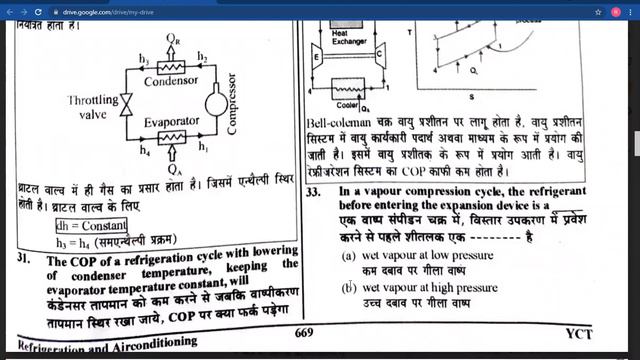 drive.google.com/drive/my-drive
नियंत्रित होता है।
Q_R
h₃
h₂
Condensor
Throttling
valve
Compressor
Evaporator
h₄
h₁
Q_A
थ्राटल वाल्व में ही गैस का प्रसार होता है। जिसमें एन्थैल्पी स्थिर
होती है। थ्राटल वाल्व के लिए
dh = Constant
h₃ = h₄ (समएन्थैल्पी प्रक्रम)
31. The COP of a refrigeration cycle with lowering
of condenser temperature, keeping the
evaporator temperature constant, will
कंडेनसर तापमान को कम करने से जबकि वाष्पीकरण
तापमान स्थिर रखा जाये, COP पर क्या फर्क पड़ेगा
Heat
Exchanger
E
C
4
1
Cooler
T
3
4
1
S
Bell-coleman चक्र वायु प्रशीतन पर लागू होता है, वायु प्रशीतन
सिस्टम में वायु कार्यकारी पदार्थ अथवा माध्यम के रूप में प्रयोग की
जाती है। इसमें वायु प्रशीतक के रूप में प्रयोग आती है। वायु
रेफ्रीजरेशन सिस्टम का COP काफी कम होता है।
33. In a vapour compression cycle, the refrigerant
before entering the expansion device is a
एक वाष्प संपीडन चक्र में, विस्तार उपकरण में प्रवेश
करने से पहले शीतलक एक -------- है
(a) wet vapour at low pressure
कम दबाव पर गीला वाष्प
(b) wet vapour at high pressure
उच्च दबाव पर गीला वाष्प
Refrigeration and Airconditioning
669
YCT